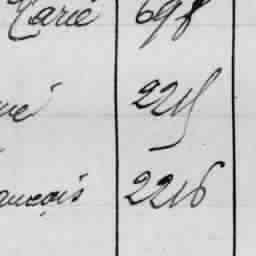 Marie 698
né 2215
ançois 2216